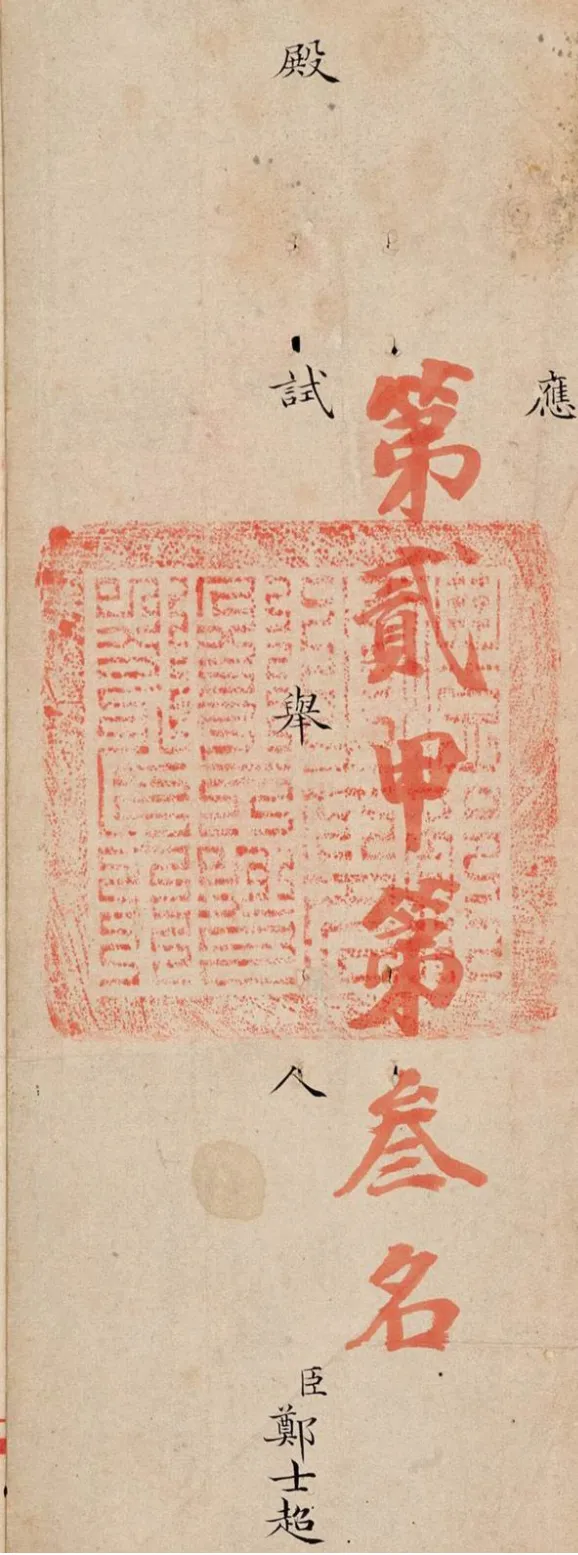 應
第貳甲第叁名
殿試舉人臣鄭士超